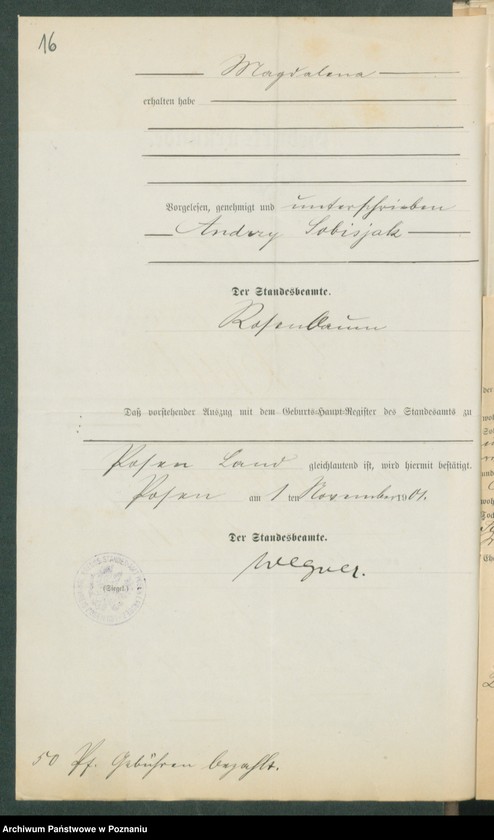 16
Magdalena
erhalten habe
Vorgelesen, genehmigt und unterschrieben
Andrzy Sobisjak
Der Standesbeamte.
Rosenbaum
Daß vorstehender Auszug mit dem Geburts-Haupt-Register des Standesamts zu
Posen Land gleichlautend ist, wird hiermit bestätigt.
Posen am 1 ten November 1901.
Der Standesbeamte.
Wegner.
(Siegel.)
50 Pf. Gebühren bezahlt.
Archiwum Państwowe w Poznaniu